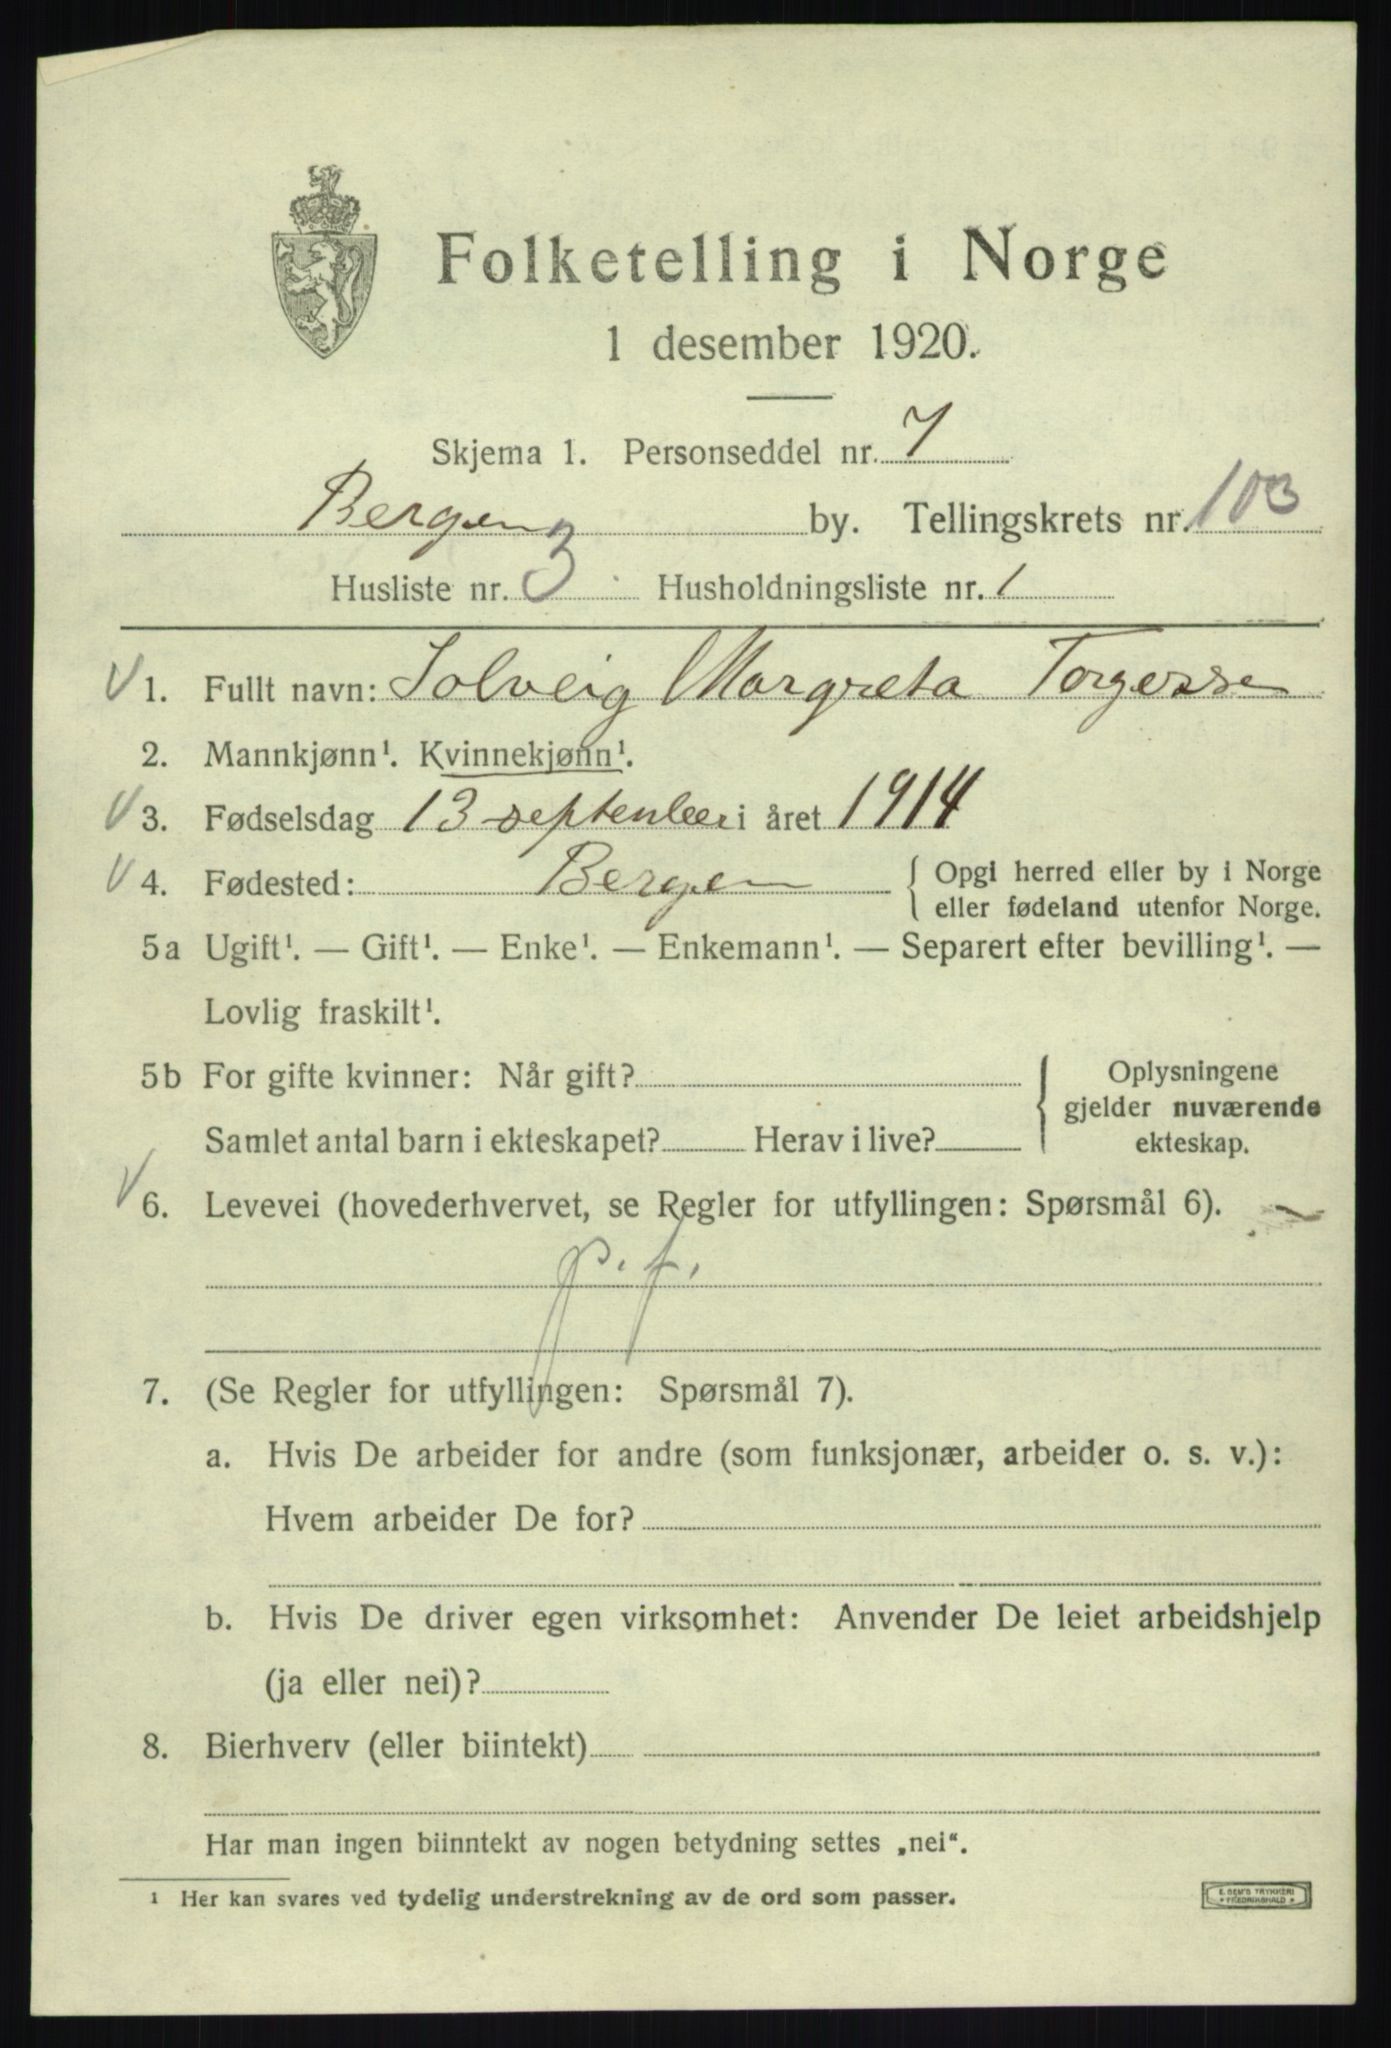 Folketelling i Norge
1 desember 1920.
Skjema 1. Personseddel nr. 7
Bergen by. Tellingskrets nr. 103
Husliste nr. 3 Husholdningsliste nr. 1
1. Fullt navn: Solveig Margreta Torgersse
2. Mannkjønn¹. Kvinnekjønn¹.
3. Fødselsdag 13 september i året 1914
4. Fødested: Bergen { Opgi herred eller by i Norge
eller fødeland utenfor Norge.
5a Ugift¹. — Gift¹. — Enke¹. — Enkemann¹. — Separert efter bevilling¹. —
Lovlig fraskilt¹.
5b For gifte kvinner: Når gift? { Oplysningene
gjelder nuværende
Samlet antal barn i ekteskapet? Herav i live? ekteskap.
6. Levevei (hovederhvervet, se Regler for utfyllingen: Spørsmål 6).
p. f.
7. (Se Regler for utfyllingen: Spørsmål 7).
a. Hvis De arbeider for andre (som funksjonær, arbeider o. s. v.):
Hvem arbeider De for?
b. Hvis De driver egen virksomhet: Anvender De leiet arbeidshjelp
(ja eller nei)?
8. Bierhverv (eller biintekt)
Har man ingen biinntekt av nogen betydning settes „nei“.
¹ Her kan svares ved tydelig understrekning av de ord som passer.
E. SEM'S TRYKKERI
FREDRIKSHALD